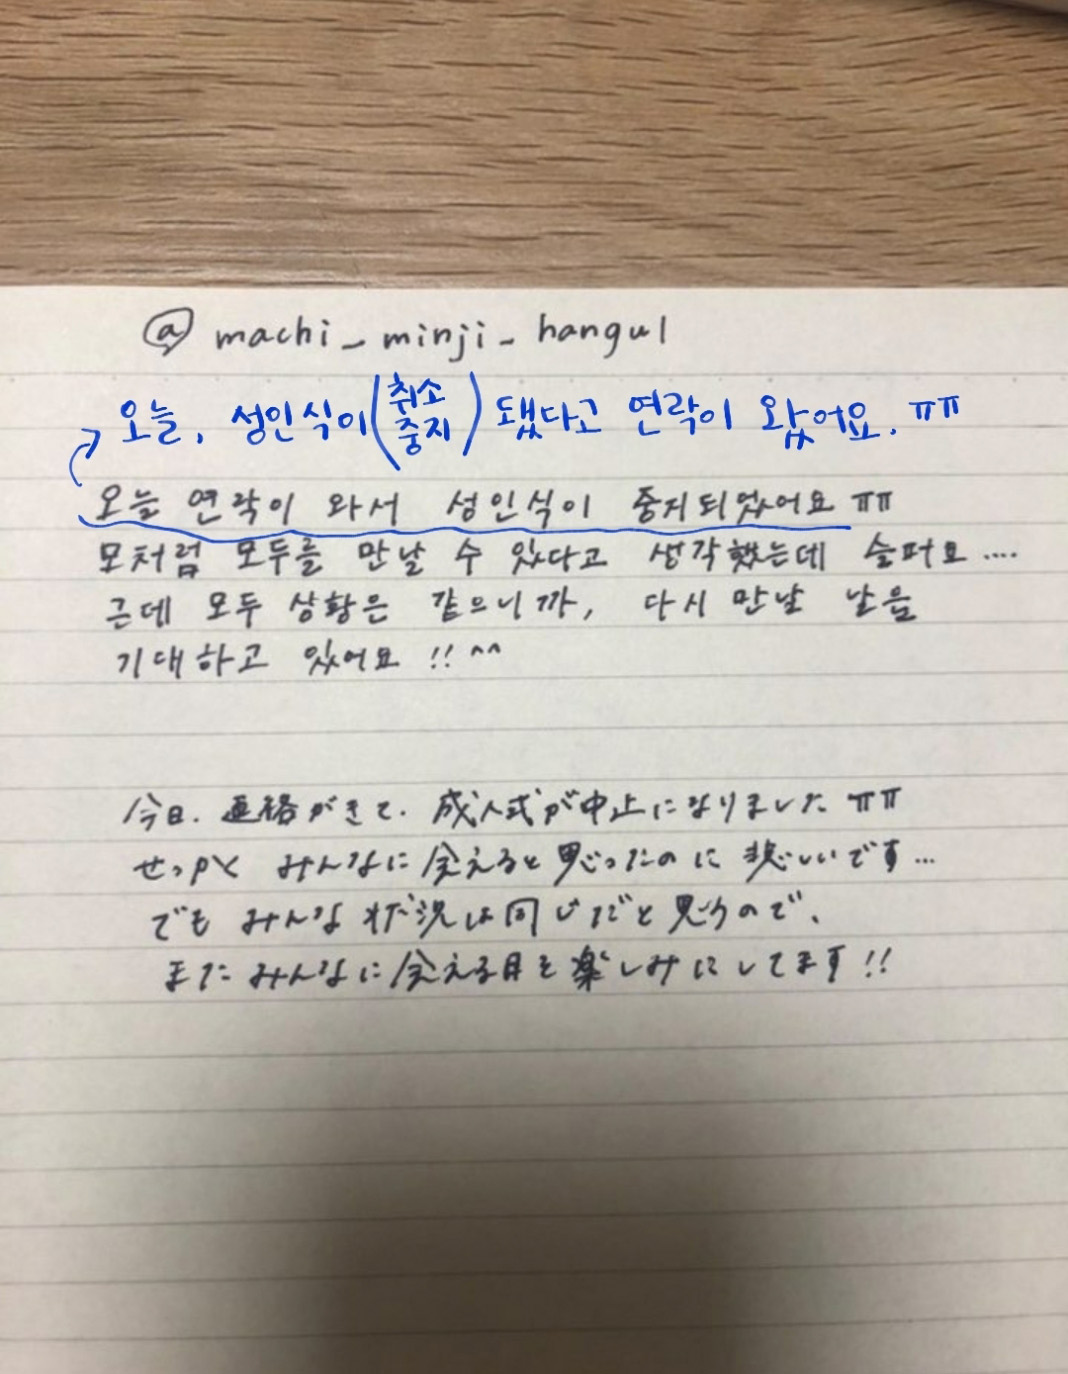 @ machi_minji_hangul
오늘, 성인식이(취소
중지) 됐다고 연락이 왔어요. ㅠㅠ
오늘 연락이 와서 성인식이 중지되었어요 ㅠㅠ
모처럼 모두를 만날 수 있다고 생각했는데 슬퍼요....
근데 모두 상황은 같으니까, 다시 만날 날을
기대하고 있어요 !! ^^
今日. 連絡がきて. 成人式が中止になりました ㅠㅠ
せっかく みんなに会えると思ったのに悲しいです...
でもみんな状況は同じだと思うので、
またみんなに会える日を楽しみにしてます!!